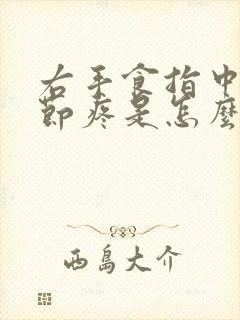 右手食指中
節疼是怎麼
西島大介